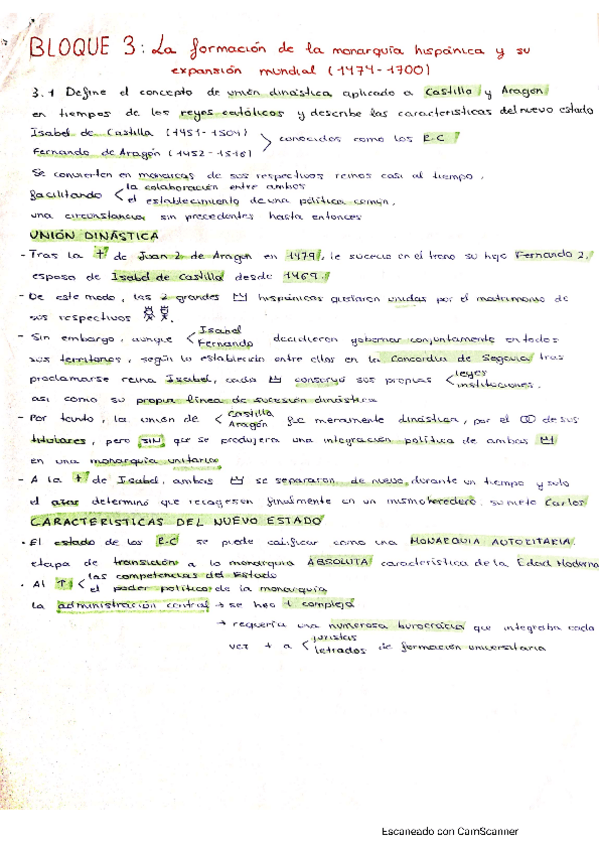 BLOQUE 3: La formación de la monarquía hispánica y su
expansión mundial (1474-1700)
3.1 Define el concepto de unión dinástica aplicado a Castilla y Aragón
en tiempos de los reyes católicos y describe las características del nuevo estado
Isabel de Castilla (1451-1504)
Fernando de Aragón (1452-1516) > conocidos como los R.C
Se convierten en monarcas de sus respectivos reinos casi al tiempo,
facilitando < la colaboración entre ambos
el establecimiento de una política común,
una circunstancia sin precedentes hasta entonces
UNIÓN DINÁSTICA
- Tras la † de Juan 2 de Aragon en 1479, le sucede en el trono su hijo Fernando 2,
esposo de Isabel de Castilla desde 1469.
- De este modo, las 2 grandes hispánicas quedaron unidas por el matrimonio de
sus respectivos
- Sin embargo, aunque < Isabel
Fernando decidieron gobernar conjuntamente en todos
sus territorios, según lo establecido entre ellos en la Concordia de Segovia tras
proclamarse reina Isabel, cada conservó sus propias < leyes
instituciones.
asi como su propia linea de sucesión dinástica
- Por tanto, la unión de < Castilla
Aragón fue meramente dinástica, por el de sus
titulares, pero SIN que se produjera una integración política de ambas
en una monarquía unitaria
- A la † de Isabel, ambas se separaron de nuevo, durante un tiempo y solo
el azar determinó que recayesen finalmente en un mismo heredero, su nieto Carlos
CARACTERISTICAS DEL NUEVO ESTADO
• El estado de los R.C se puede calificar como una MONARQUIA AUTORITARIA,
etapa de transición a la monarquia ABSOLUTA característica de la Edad Moderna
• Al ↑ < las competencias del Estado
el poder político de la monarquía
la administración central → se hizo + compleja
→ requería una numerosa burocracia que integraba cada
vez + a < juristas
letrados de formación universitaria
Escaneado con CamScanner